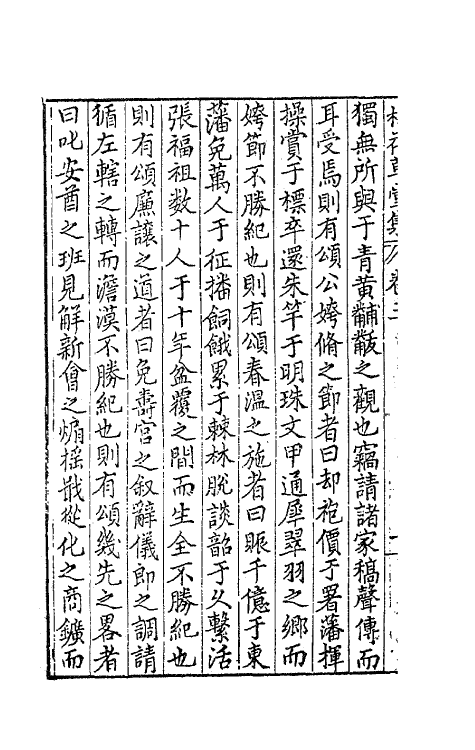 獨無所與于青黃黼黻之觀也竊請諸家稿聲傳而
耳受焉則有頌公姱脩之節者曰却袍價于署藩揮
操賞于標卒還朱竿于明珠文甲通犀翠羽之鄉而
姱節不勝紀也則有頌春溫之施者曰賑千億于東
藩免萬人于征播飼餓累于棘林脫談韶于久繫活
張福祖数十人于十年盆覆之間而生全不勝紀也
則有頌廉讓之道者曰免壽宮之叙辭儀郎之調請
循左轄之轉而澹漠不勝紀也則有頌幾先之畧者
曰叱安酋之班見解新會之煽揺戢從化之商鑛而